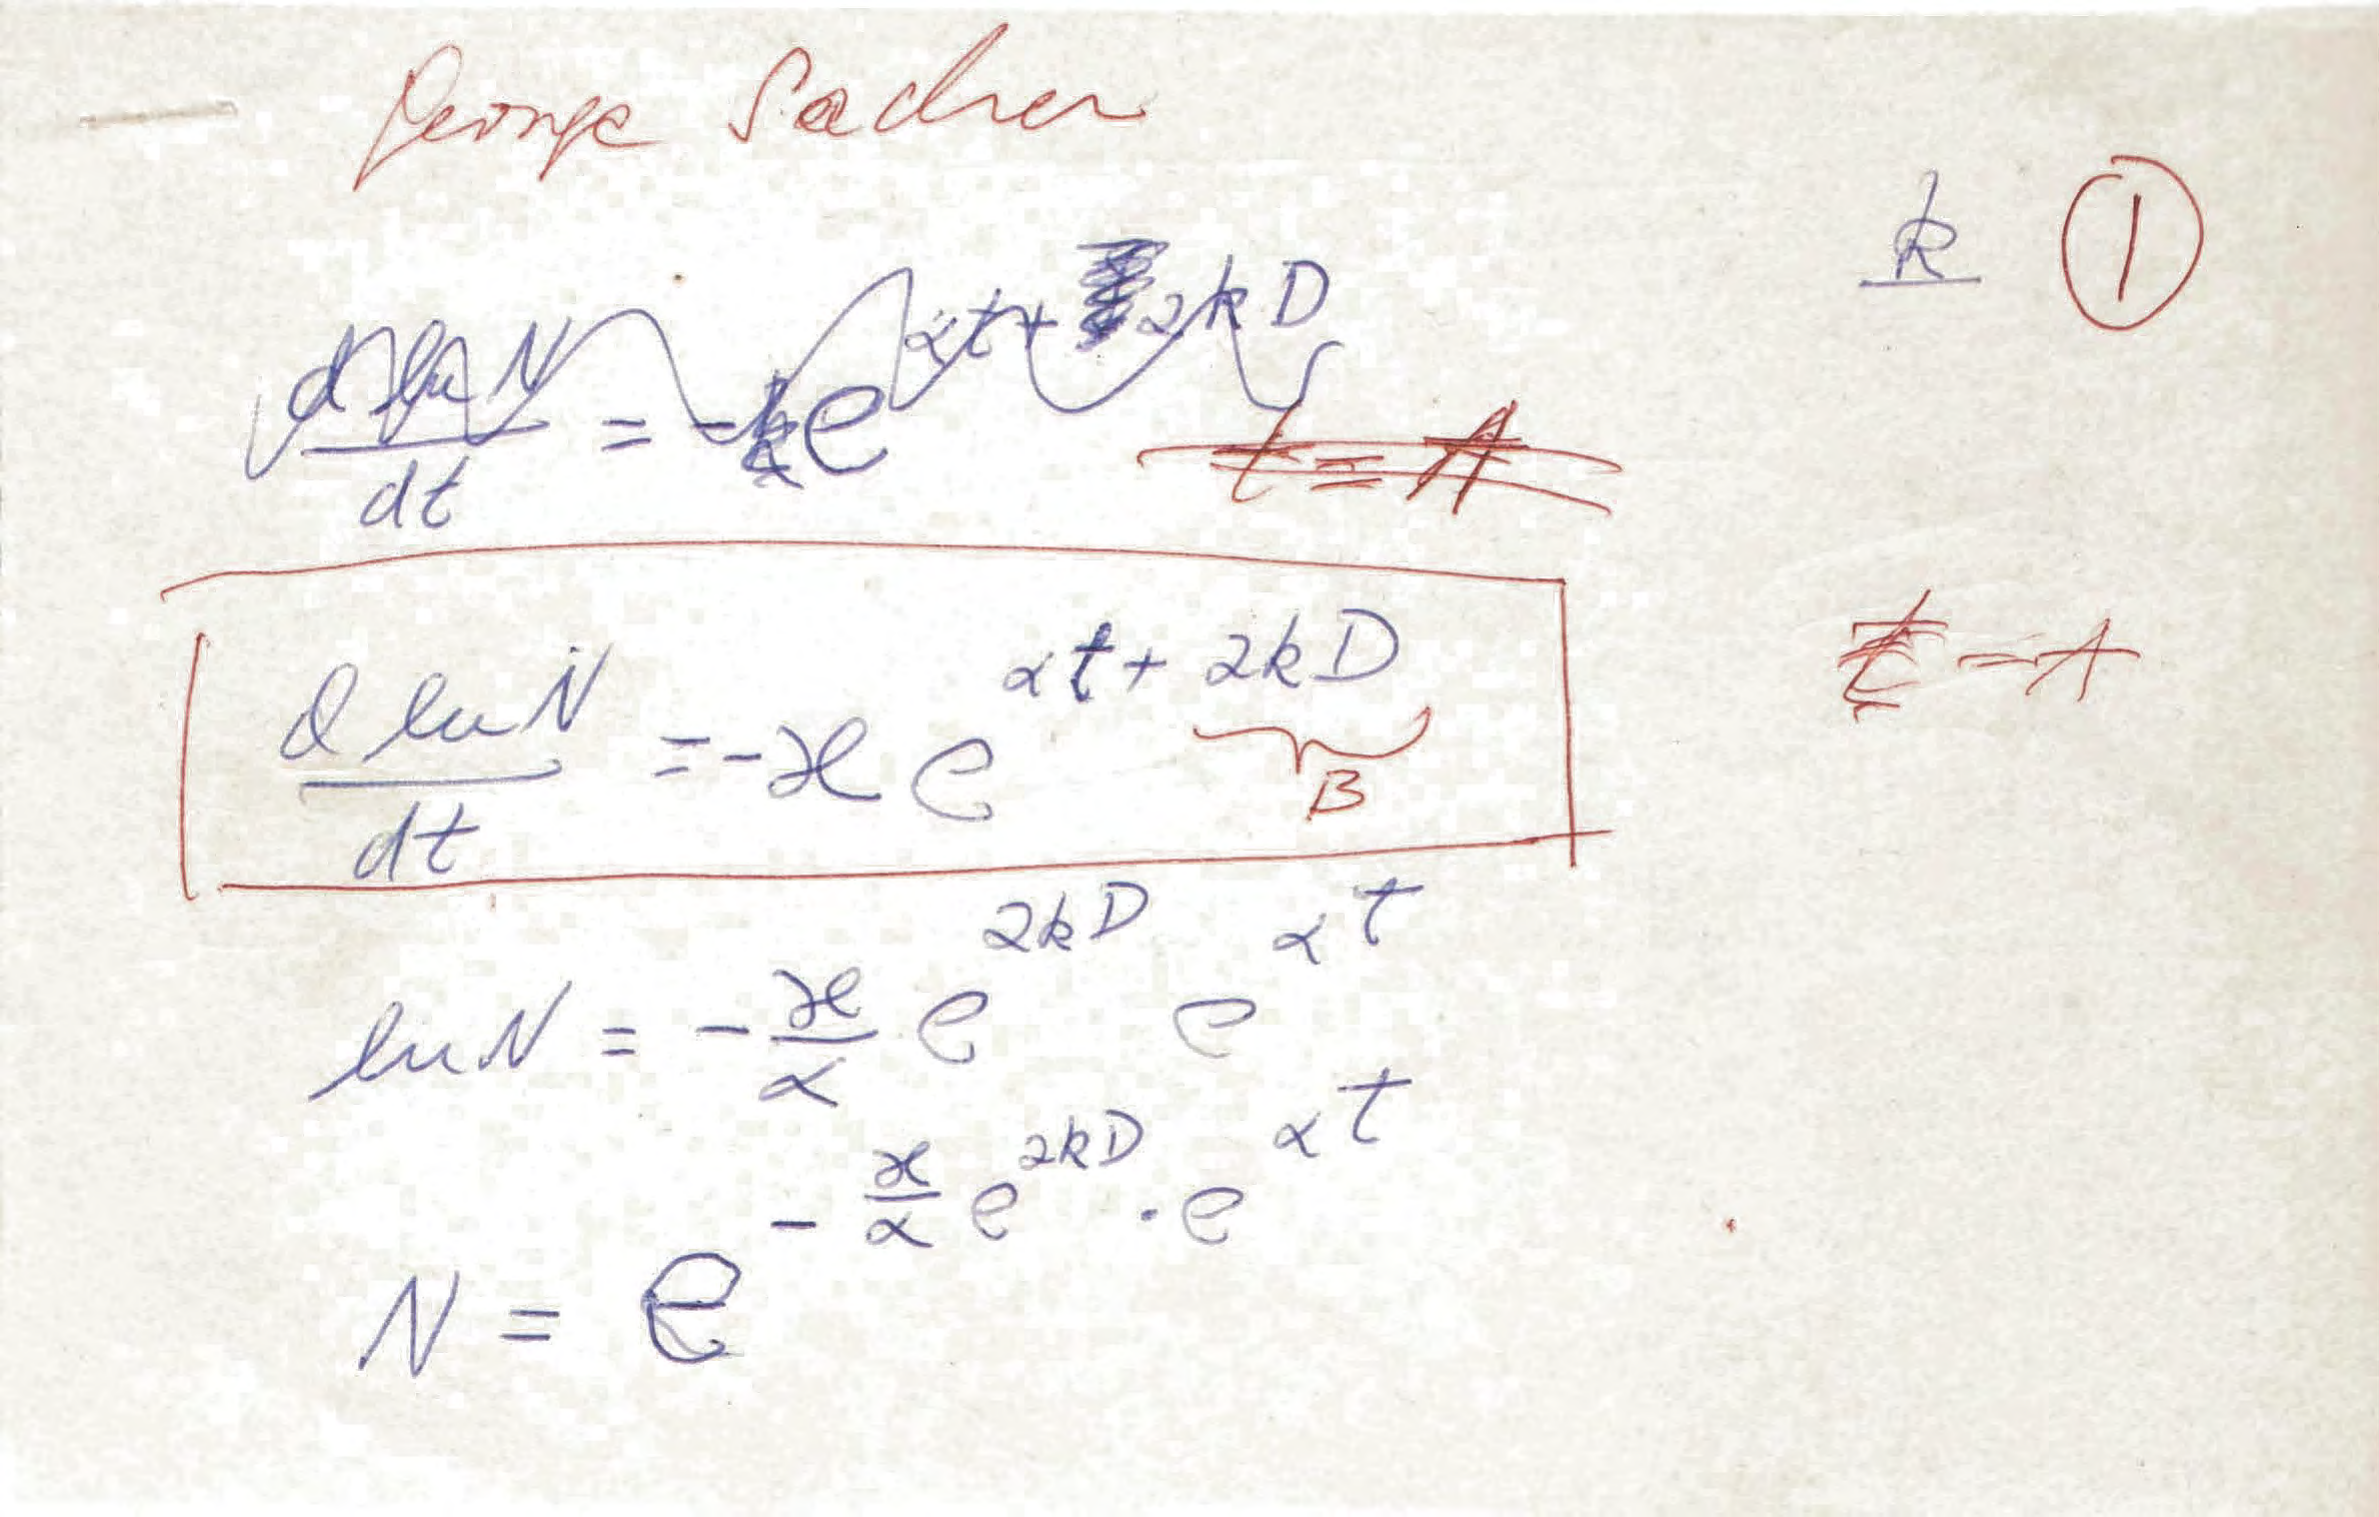 George Sacher
k ①
d ln N / dt = - k e^{αt + 2kD}
t = A
d ln N / dt = - ϰ e^{αt + 2kD}
B
t - A
ln N = - ϰ/α e^{2kD} e^{αt}
N = e^{- ϰ/α e^{2kD} · e^{αt}}